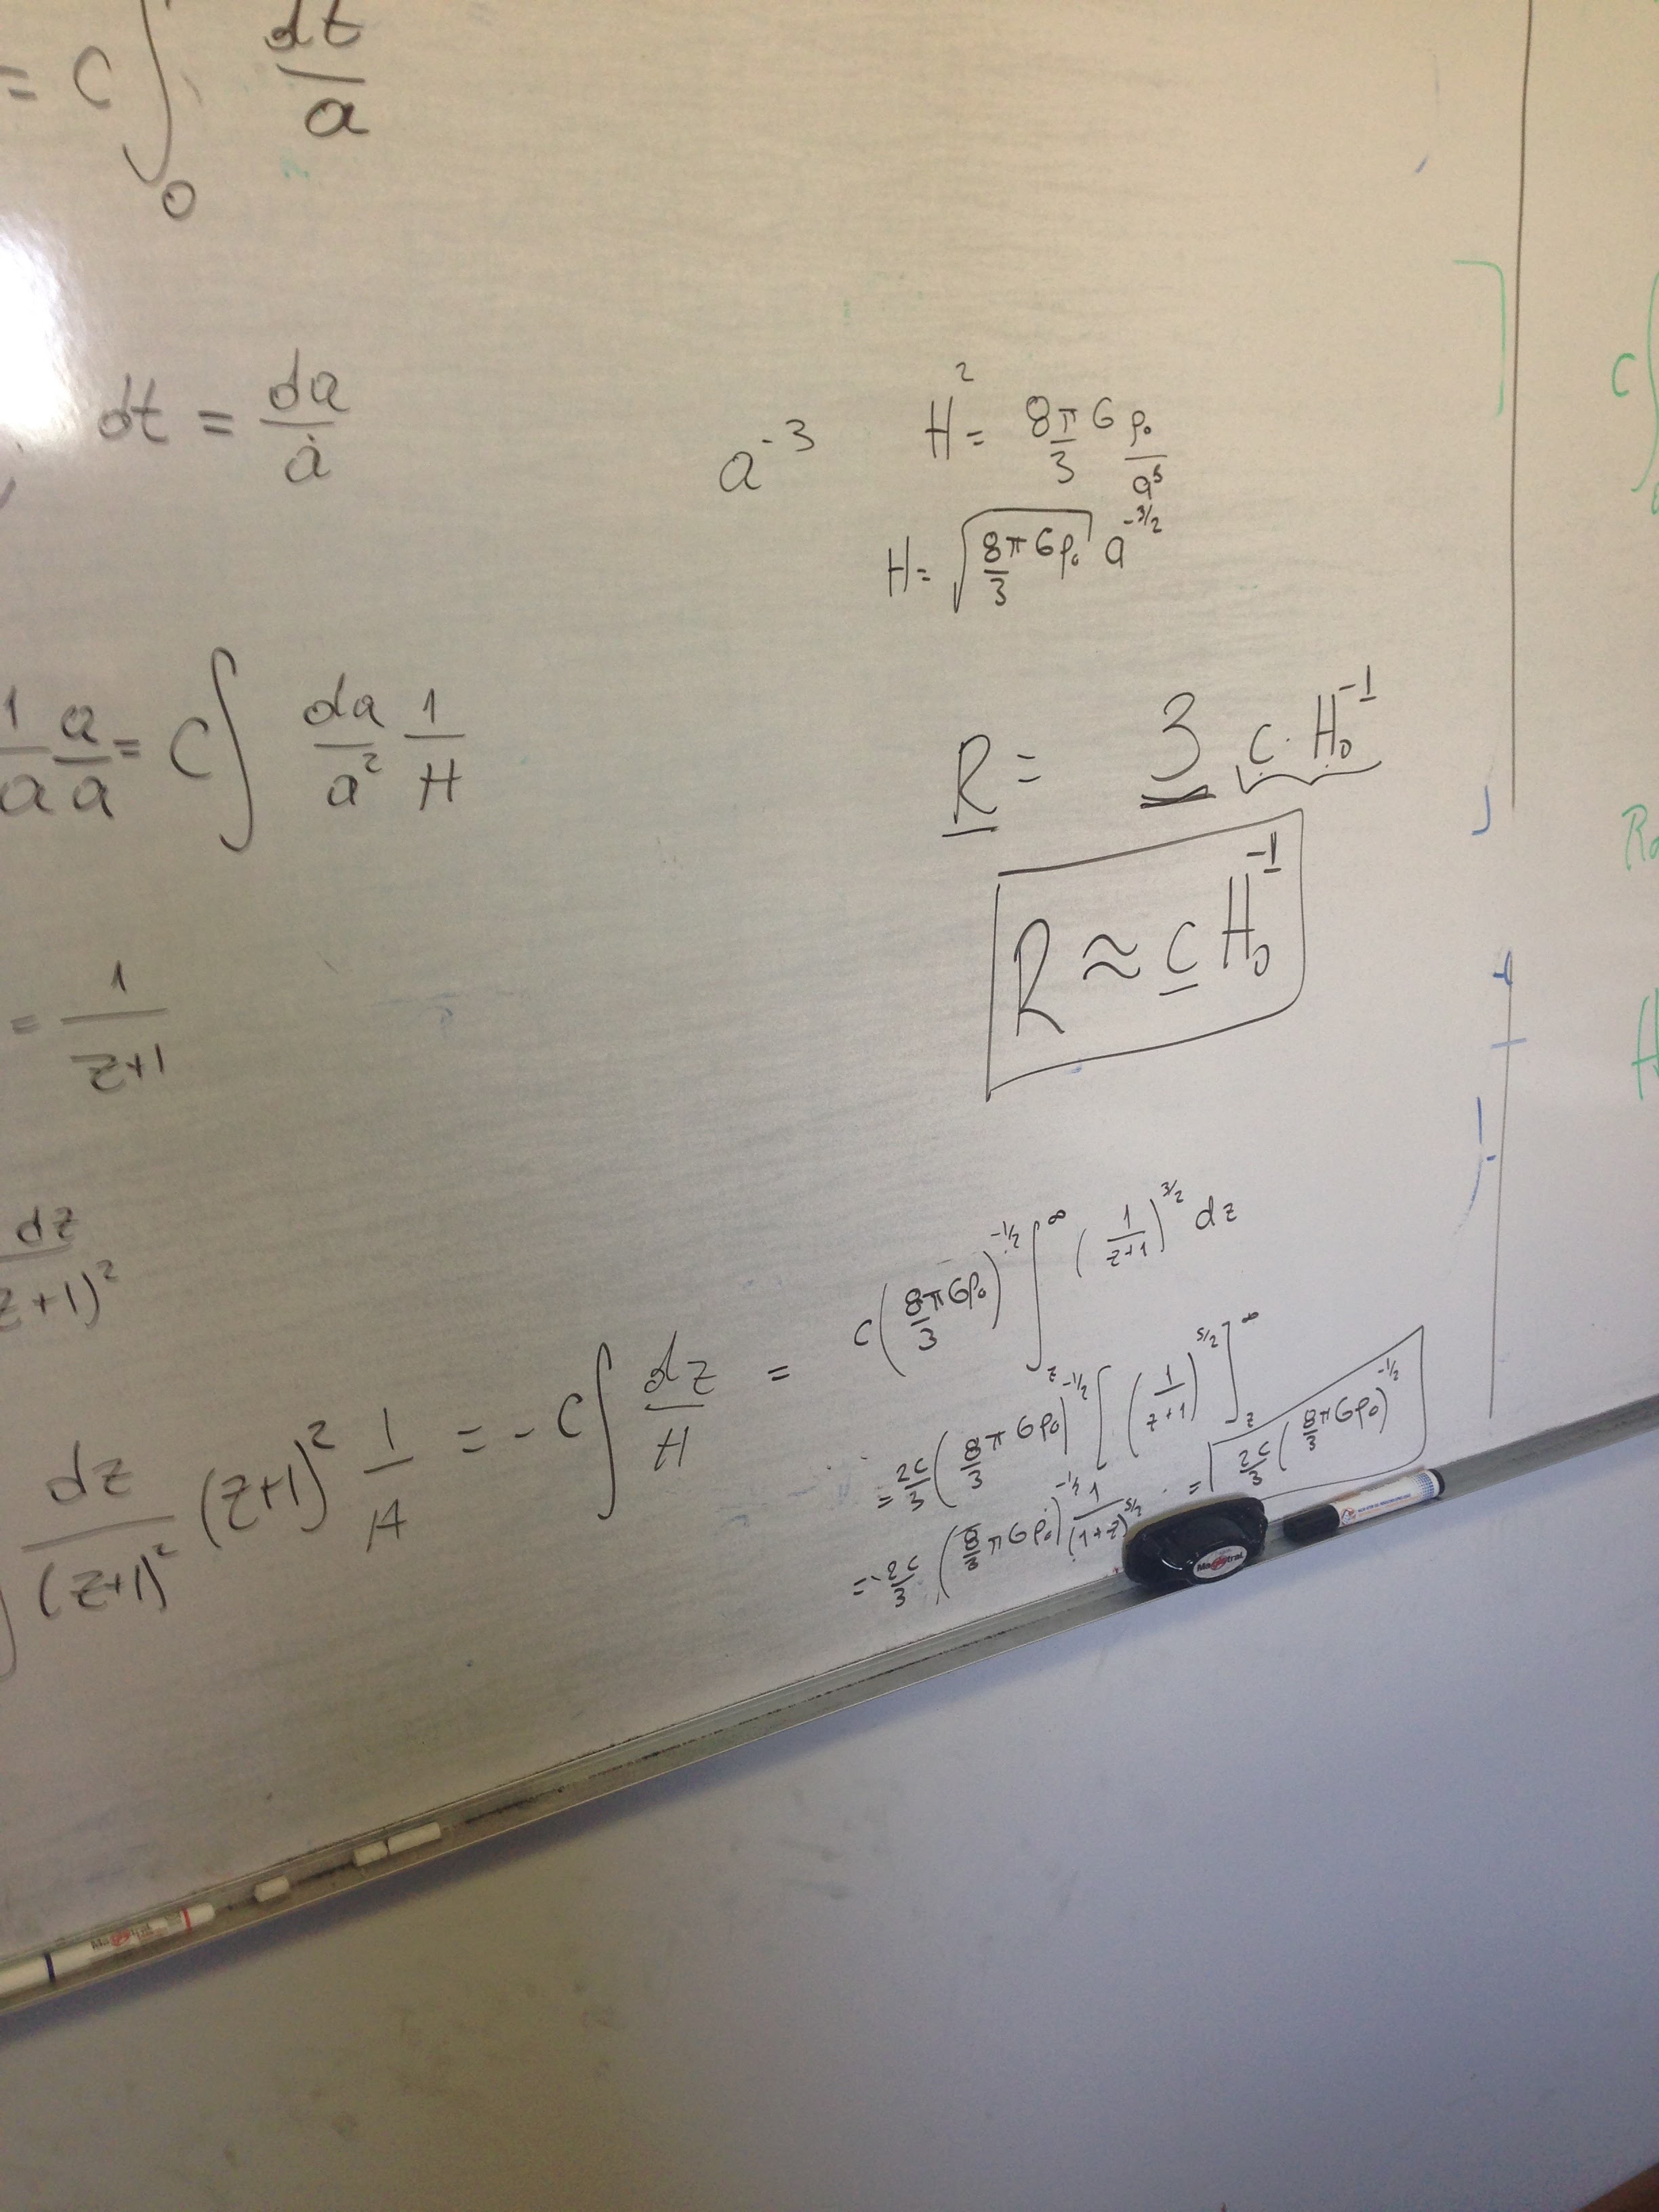 = C ∫₀ dt/a
dt = da/ȧ
a⁻³
H² = 8π/3 G ρ₀/a³
H = √(8/3 πGρ₀) a^(-3/2)
1/a a/a = C ∫ da/a² 1/H
R = 3 c · H₀⁻¹
R ≈ c H₀⁻¹
= 1/(z+1)
dz/(z+1)²
dz/(z+1)² (z+1)² 1/H = - C ∫ dz/H =
c (8/3 πGρ₀)^(-1/2) ∫_z^∞ (1/(z+1))^(3/2) dz
= 2c/3 (8/3 πGρ₀)^(-1/2) [(1/(z+1))^(5/2)]_z^∞
= -2c/3 (8/3 πGρ₀)^(-1/2) 1/(1+z)^(5/2)
= 2c/3 (8/3 πGρ₀)^(-1/2)
C